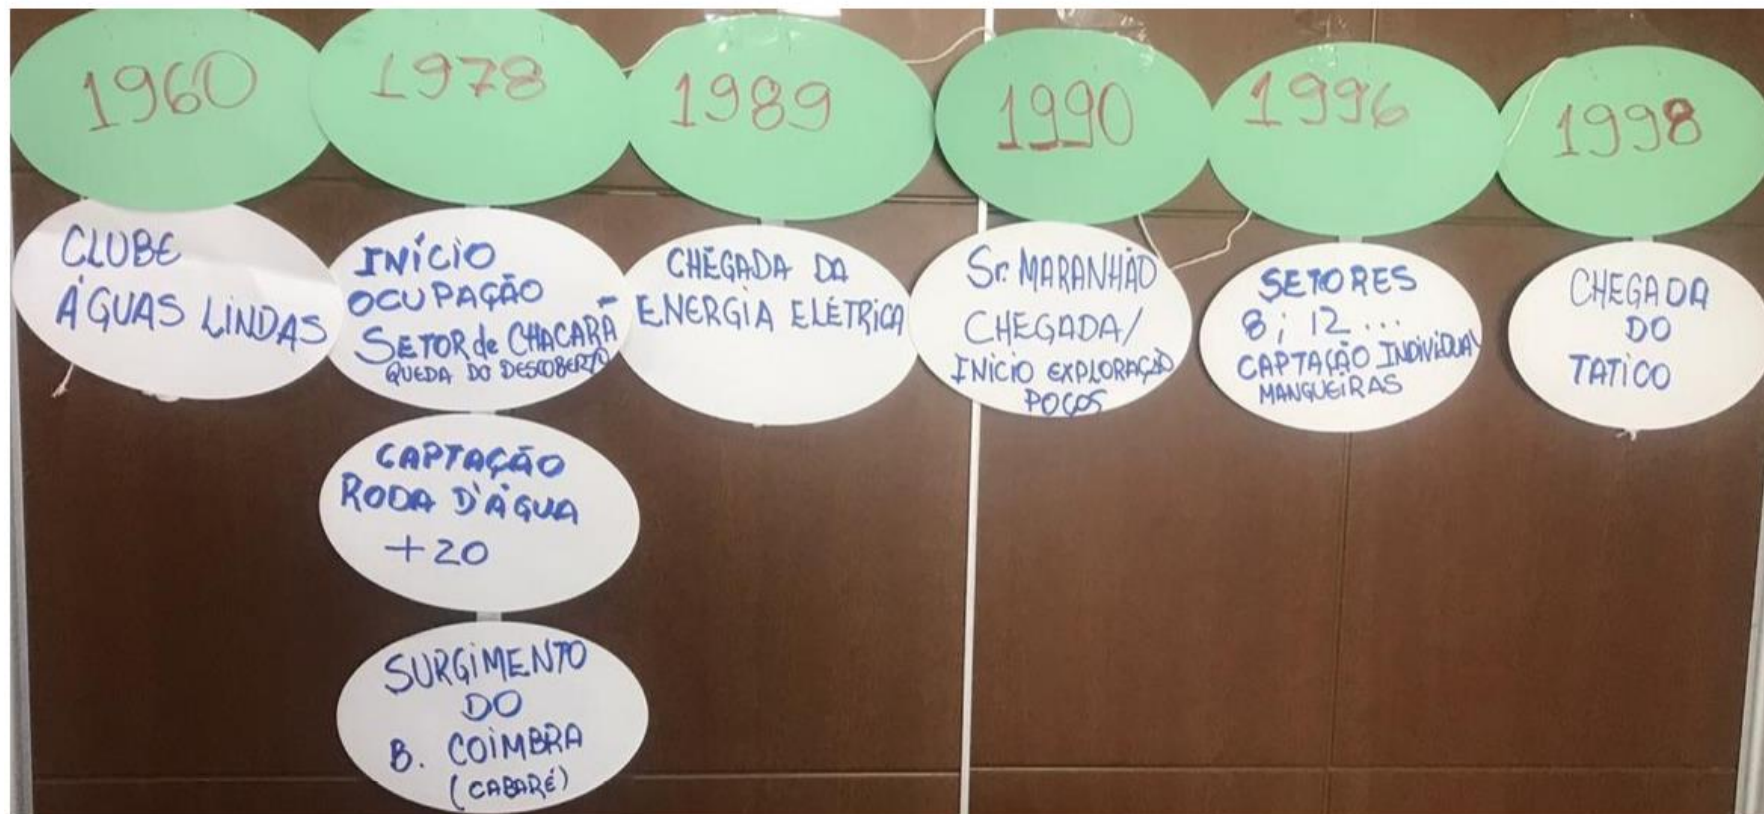 1960
CLUBE
ÁGUAS LINDAS
1978
INÍCIO
OCUPAÇÃO
SETOR de CHACARA
QUEDA DO DESCOBERTO
CAPTAÇÃO
RODA D'ÁGUA
+20
SURGIMENTO
DO
B. COIMBRA
(CABARÉ)
1989
CHEGADA DA
ENERGIA ELÉTRICA
1990
Sr. MARANHÃO
CHEGADA/
INÍCIO EXPLORAÇÃO
POÇOS
1996
SETORES
8; 12...
CAPTAÇÃO INDIVIDUAL
MANGUEIRAS
1998
CHEGADA
DO
TATICO